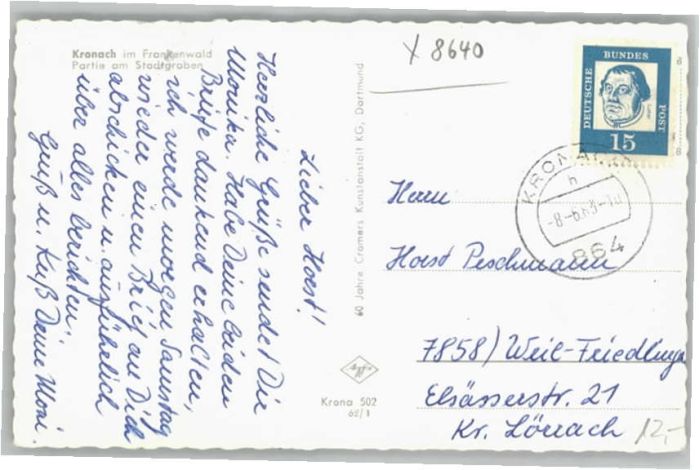 Kronach im Frankenwald
Partie am Stadtgraben
X 8640
Lieber Horst!
Herzliche Grüße sendet Dir
Monika. Habe Deine beiden
Briefe dankend erhalten,
ich werde morgen Samstag
wieder einen Brief an Dich
abschicken u. ausführlich
über alles berichten.
Gruß u. Kuß Deine Moni.
60 Jahre Cramers Kunstanstalt KG, Dortmund
Krona 502
62/1
DEUTSCHE BUNDES POST
15
KRONACH
h
864
Herrn
Horst Peschmann
7858) Weil-Friedlingen
Elsässerstr. 21
Kr. Lörrach
12,-